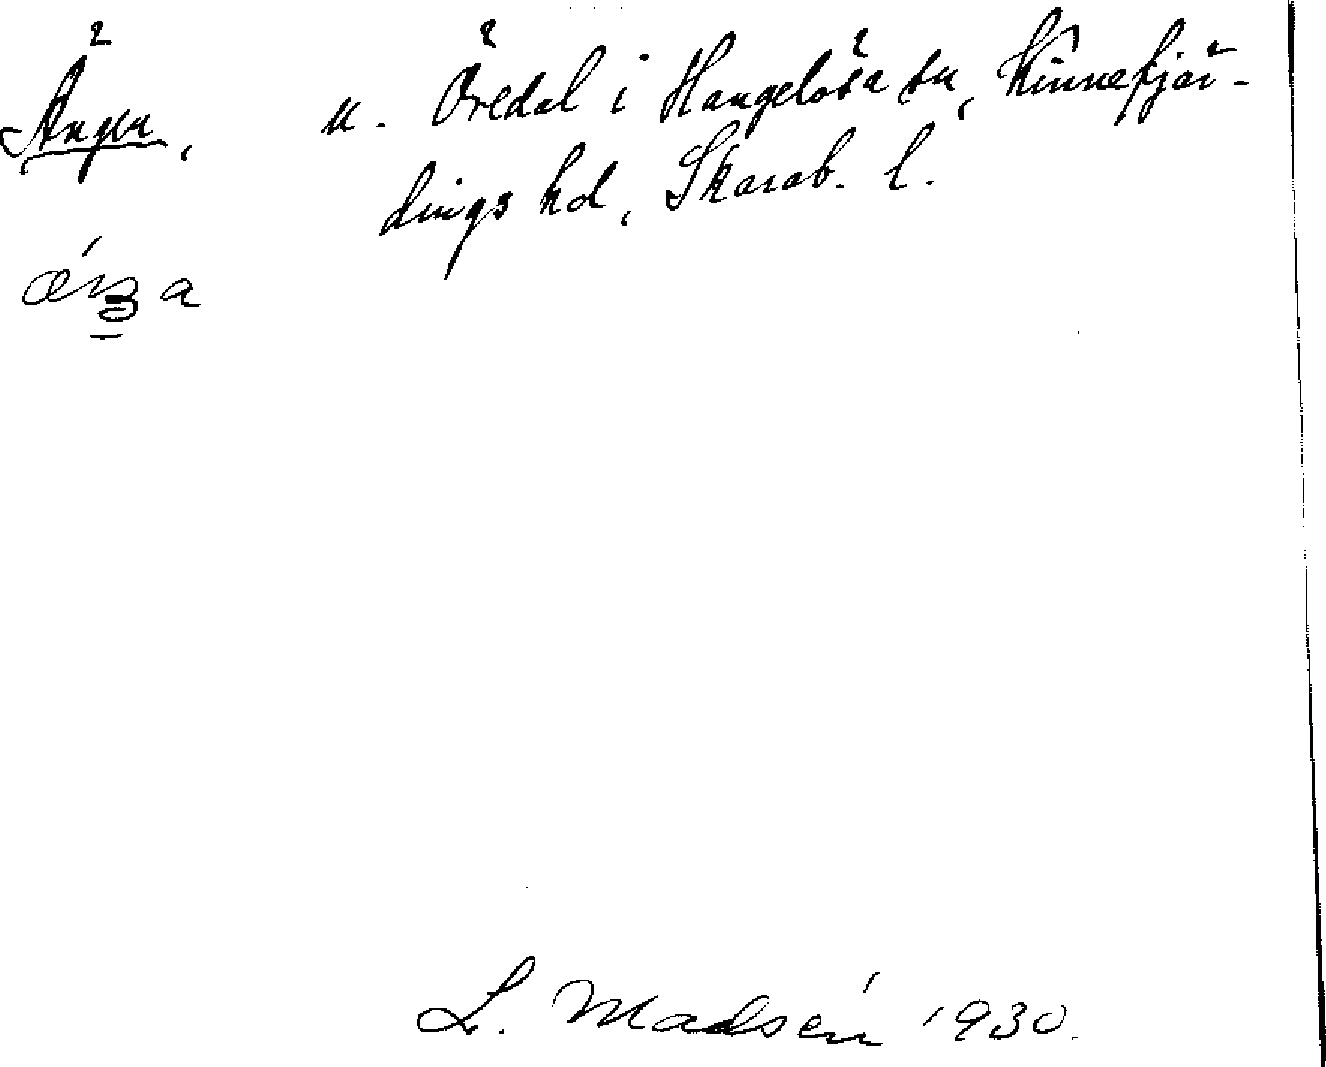 Ängen, u. Öredal i Hangelösa sn, Kinnefjär-
dings hd, Skarab. l.
L. Madsén 1930.